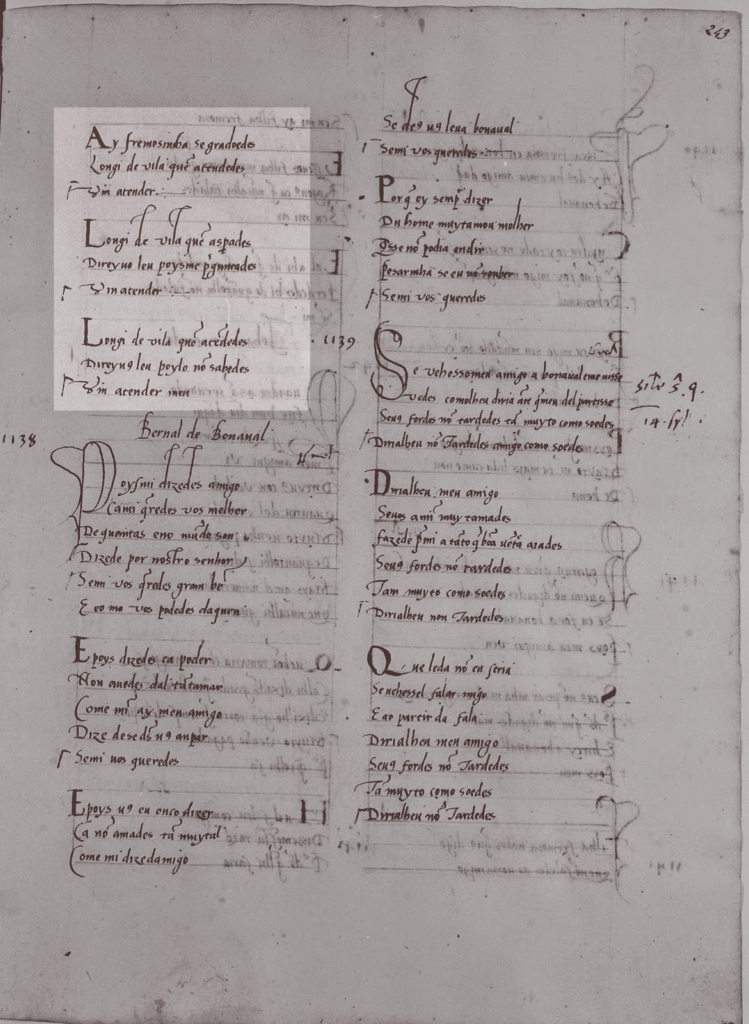 243
Ay fremosinha se gradoedes
Longi de vila quē atendedes
Vin atender
Longi de vila quē aspades
Direyuo leu poysme p̃guntades
Vin atender
Longi de vila quē atēdedes
Direyuꝯ leu poylo nō sabedes
Vin atender meu
1138
Bernal de Bonaual
Poysmi dizedes amigo
Ca mi q̃redes vos melhor
De quantas eno mūdo son
Dizede por nostro senhor
Se mi vos q̃rales gram bē
E eo mo vos podedes daquen
E poys dizedes ca poder
Non auedes dal tā amar
Come mi ay meu amigo
Dize desedꝯ uꝯ anpar
Se mi uos queredes
E poys uꝯ eu onco dizer
Ca nō amades tā muytal
Come mi dizedamigo
Se deꝯ uꝯ leua bonaual
Se mi vos queredes
Por q̃ oy semp̃ dizer
Du home muytamou molher
Q̃sse nō podia endir
Pesarmha se eu nō souber
Se mi vos queredes
1139
Se vehessomeu amigo a bonaual eme uisse
Vedes comolheu diria ātē q̃meu del partisse
Seuꝯ fordes nō tardedes tā muyto como soedes
Dirialheu nō tardedes amigo como soedes
Dirialheu meu amigo
Seuꝯ a mī muy tamades
Fazede p̃mi a tāto q̃ bōa uētā aiades
Seuꝯ fordes nō tardedes
Tam muyto como soedes
Dirialheu non Tardedes
Que leda nō eu seria
Seuehessel falar migo
E ao partir da fala
Dirialheu meu amigo
Seuꝯ fordes nō Tardedes
Tā muyto como soedes
Dirialheu nō Tardedes